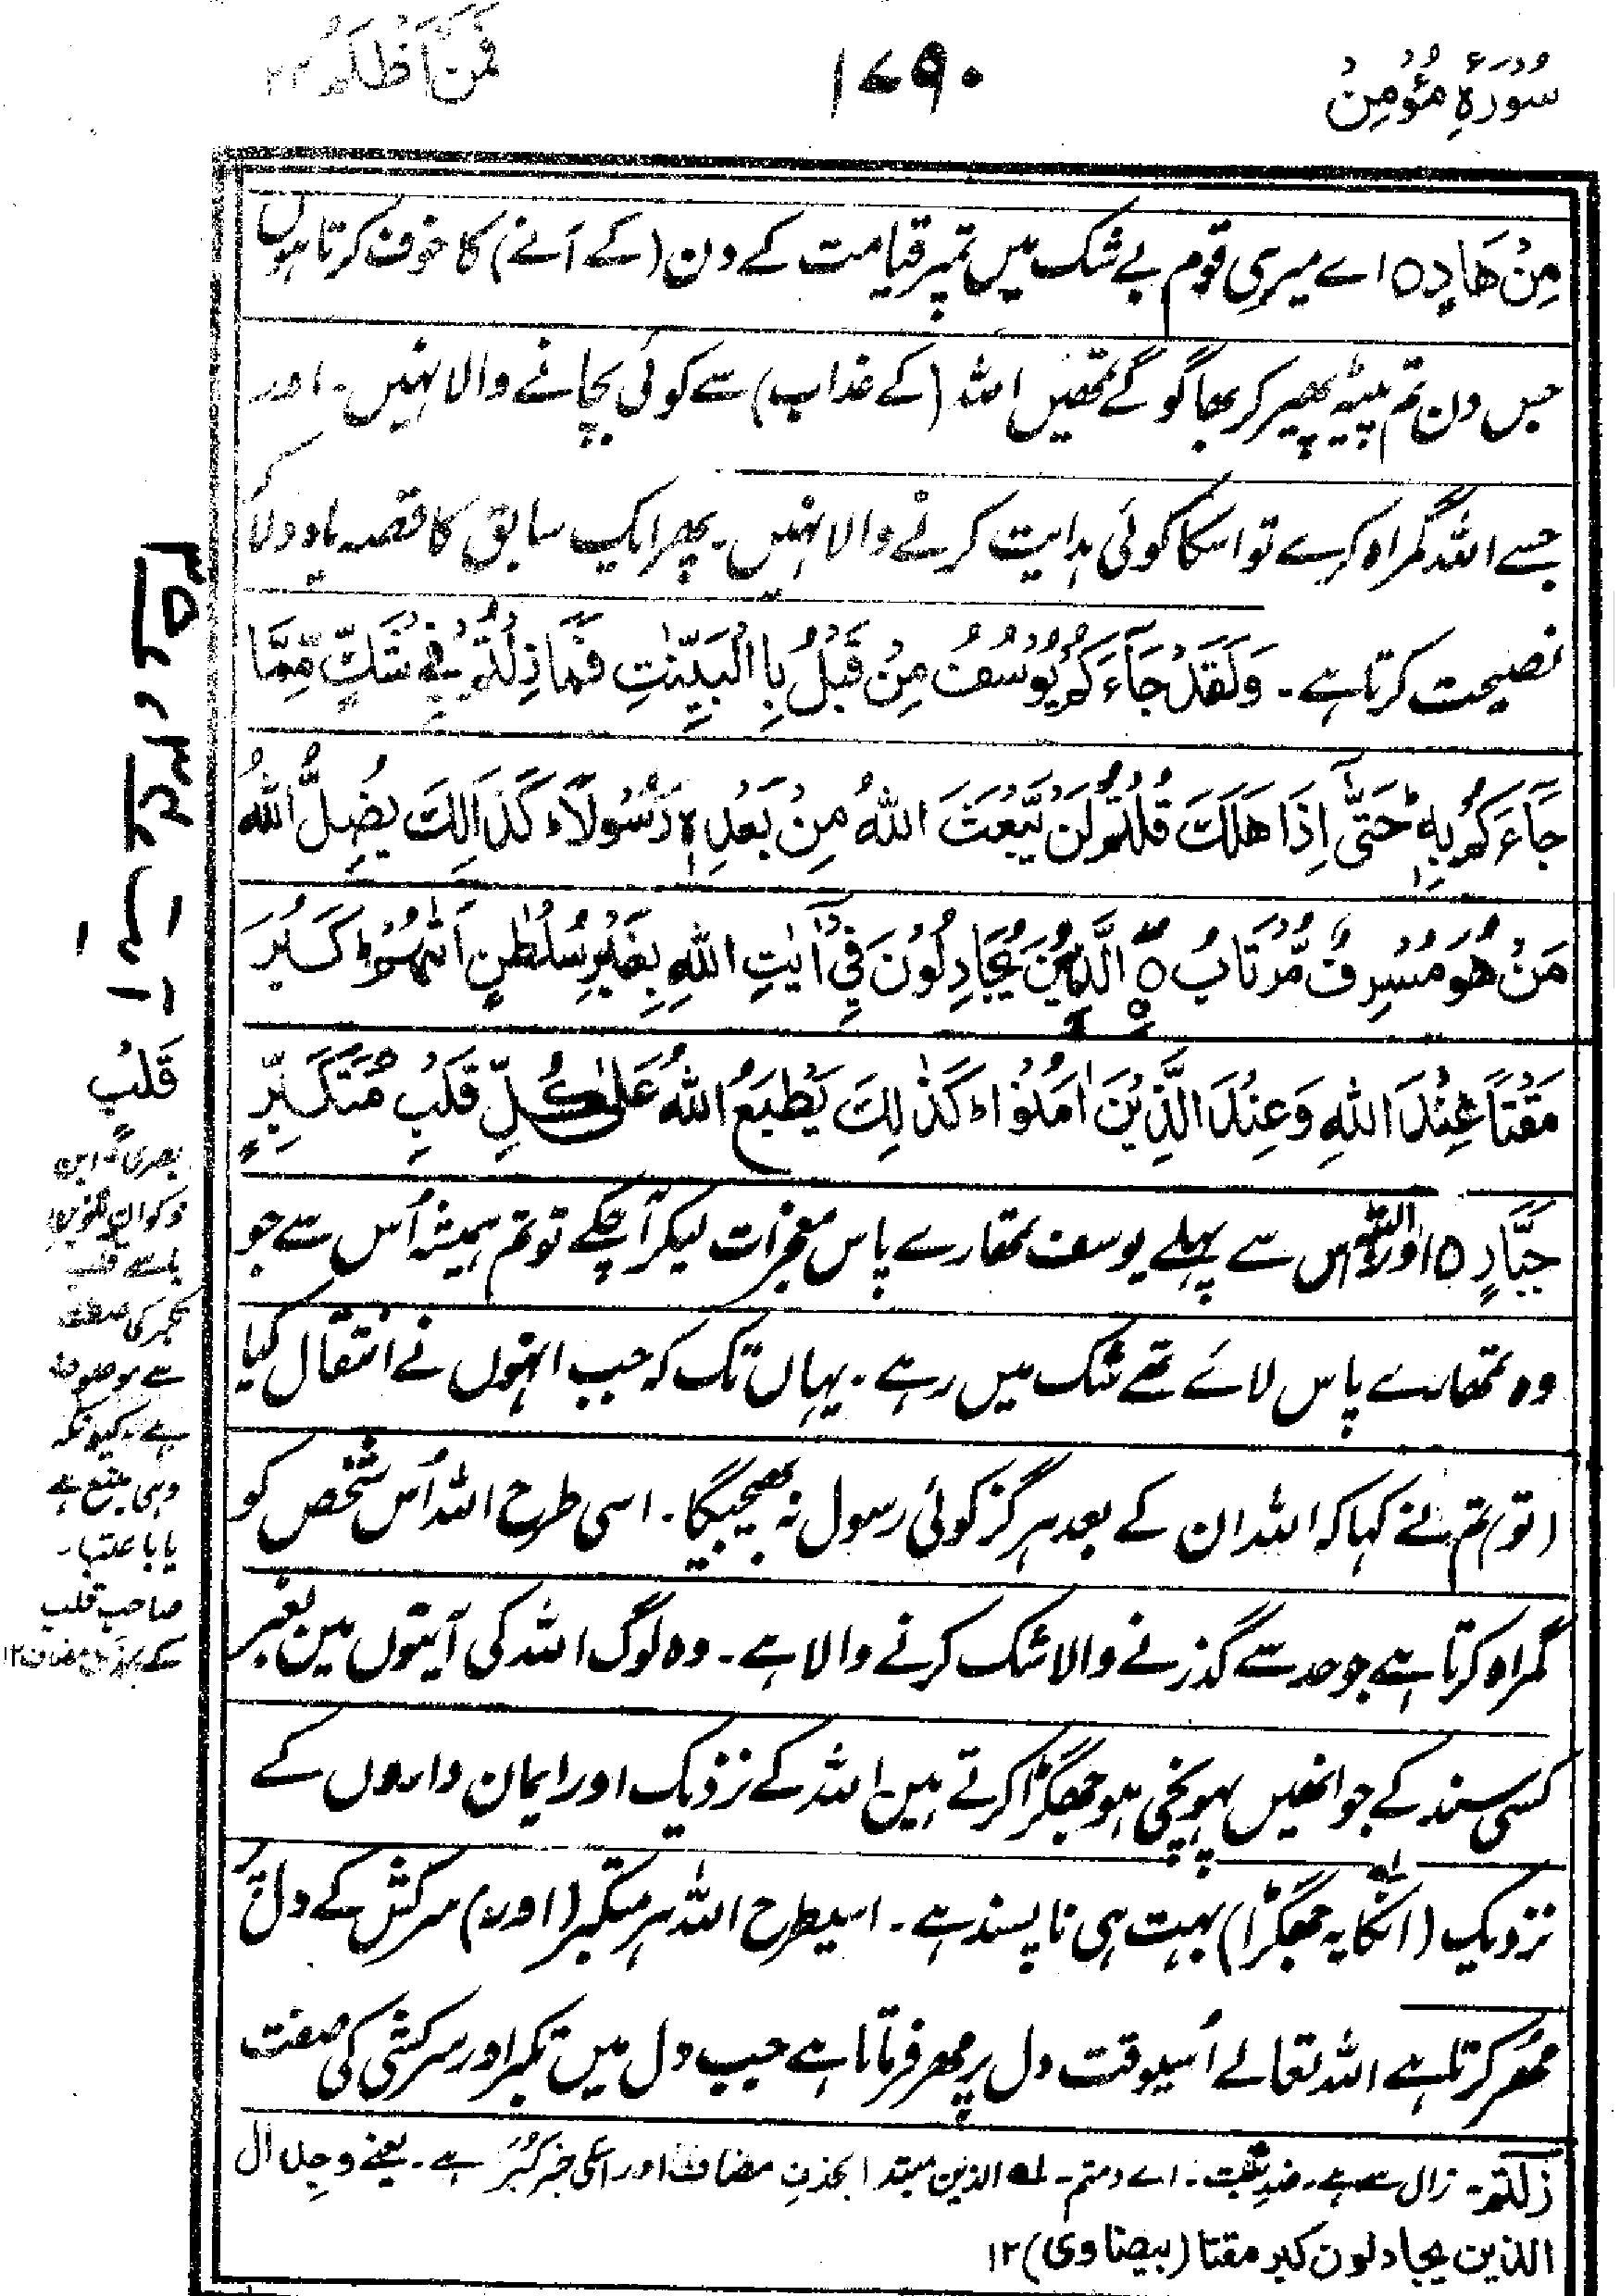 سُوْرَۃِ مُؤْمِنْ
۱۷۹۰
فَمَنْ اَظْلَمُ ۲۴
مِنْ هَادٍ ۝ اے میری قوم بے شک میں تمپر قیامت کے دن (کے آنے) کا خوف کرتا ہوں
جس دن تم پیٹھ پھیر کر بھاگو گے تمھیں اللہ (کے عذاب) سے کوئی بچانے والا نہیں۔ اور
جسے اللہ گمراہ کرے تو اسکا کوئی ہدایت کرنے والا نہیں۔ پھر ایک سابق کا قصہ یاد دلا کر
نصیحت کرتا ہے۔ وَلَقَدْ جَآءَكُمْ يُوْسُفُ مِنْ قَبْلُ بِالْبَيِّنٰتِ فَمَا زِلْتُمْ فِيْ شَكٍّ مِّمَّا
جَآءَكُمْ بِهٖ ؕ حَتّٰٓى اِذَا هَلَكَ قُلْتُمْ لَنْ يَّبْعَثَ اللّٰهُ مِنْ بَعْدِهٖ رَسُوْلًا ؕ كَذَالِكَ يُضِلُّ اللّٰهُ
مَنْ هُوَ مُسْرِفٌ مُّرْتَابُ ۝ الَّذِيْنَ يُجَادِلُوْنَ فِيْٓ اٰيٰتِ اللّٰهِ بِغَيْرِ سُلْطٰنٍ اَتٰىهُمْ ؕ كَبُرَ
مَقْتًا عِنْدَ اللّٰهِ وَعِنْدَ الَّذِيْنَ اٰمَنُوْا ؕ كَذٰلِكَ يَطْبَعُ اللّٰهُ عَلٰى كُلِّ قَلْبِ مُتَكَبِّرٍ
جَبَّارٍ ۝ اور البتہ اس سے پہلے یوسف تمھارے پاس معجزات لیکر آ چکے تو تم ہمیشہ اُس سے جو
وہ تمھارے پاس لائے تھے شک میں رہے۔ یہاں تک کہ جب انہوں نے انتقال کیا
(تو) تم نے کہا کہ اللہ ان کے بعد ہرگز کوئی رسول نہ بھیجیگا۔ اسی طرح اللہ اُس شخص کو
گمراہ کرتا ہے جو حد سے گذرنے والا شک کرنے والا ہے۔ وہ لوگ اللہ کی آیتوں میں بغیر
کسی سند کے جو انھیں پہونچی ہو جھگڑا کرتے ہیں اللہ کے نزدیک اور ایمان داروں کے
نزدیک (انکا یہ جھگڑا) بہت ہی ناپسند ہے۔ اسیطرح اللہ ہر متکبر (اور) سرکش کے دل پر
مُھر کرتا ہے اللہ تعالےٰ اُسیوقت دل پر مُھر فرماتا ہے جب دل میں تکبر اور سرکشی کی صفت
زِلْتُمْ۔ زال سے ہے۔ ضدِ ثبت۔ اے دمتم۔ لہ الذین مبتدا بحذفِ مضاف اور اسکی خبر كَبُرَ ہے۔ یعنے وجدال
الذین یجادلون کبر مقتا (بیضاوی) ۱۲
قَلْبِ
بصری ابن
ذکوان تنوین
باسے قلب
تکبر کی صفت
سے موصوف
ہے۔ کیونکہ
وہی منبع ہے
یا باعتبار
صاحب قلب
کے